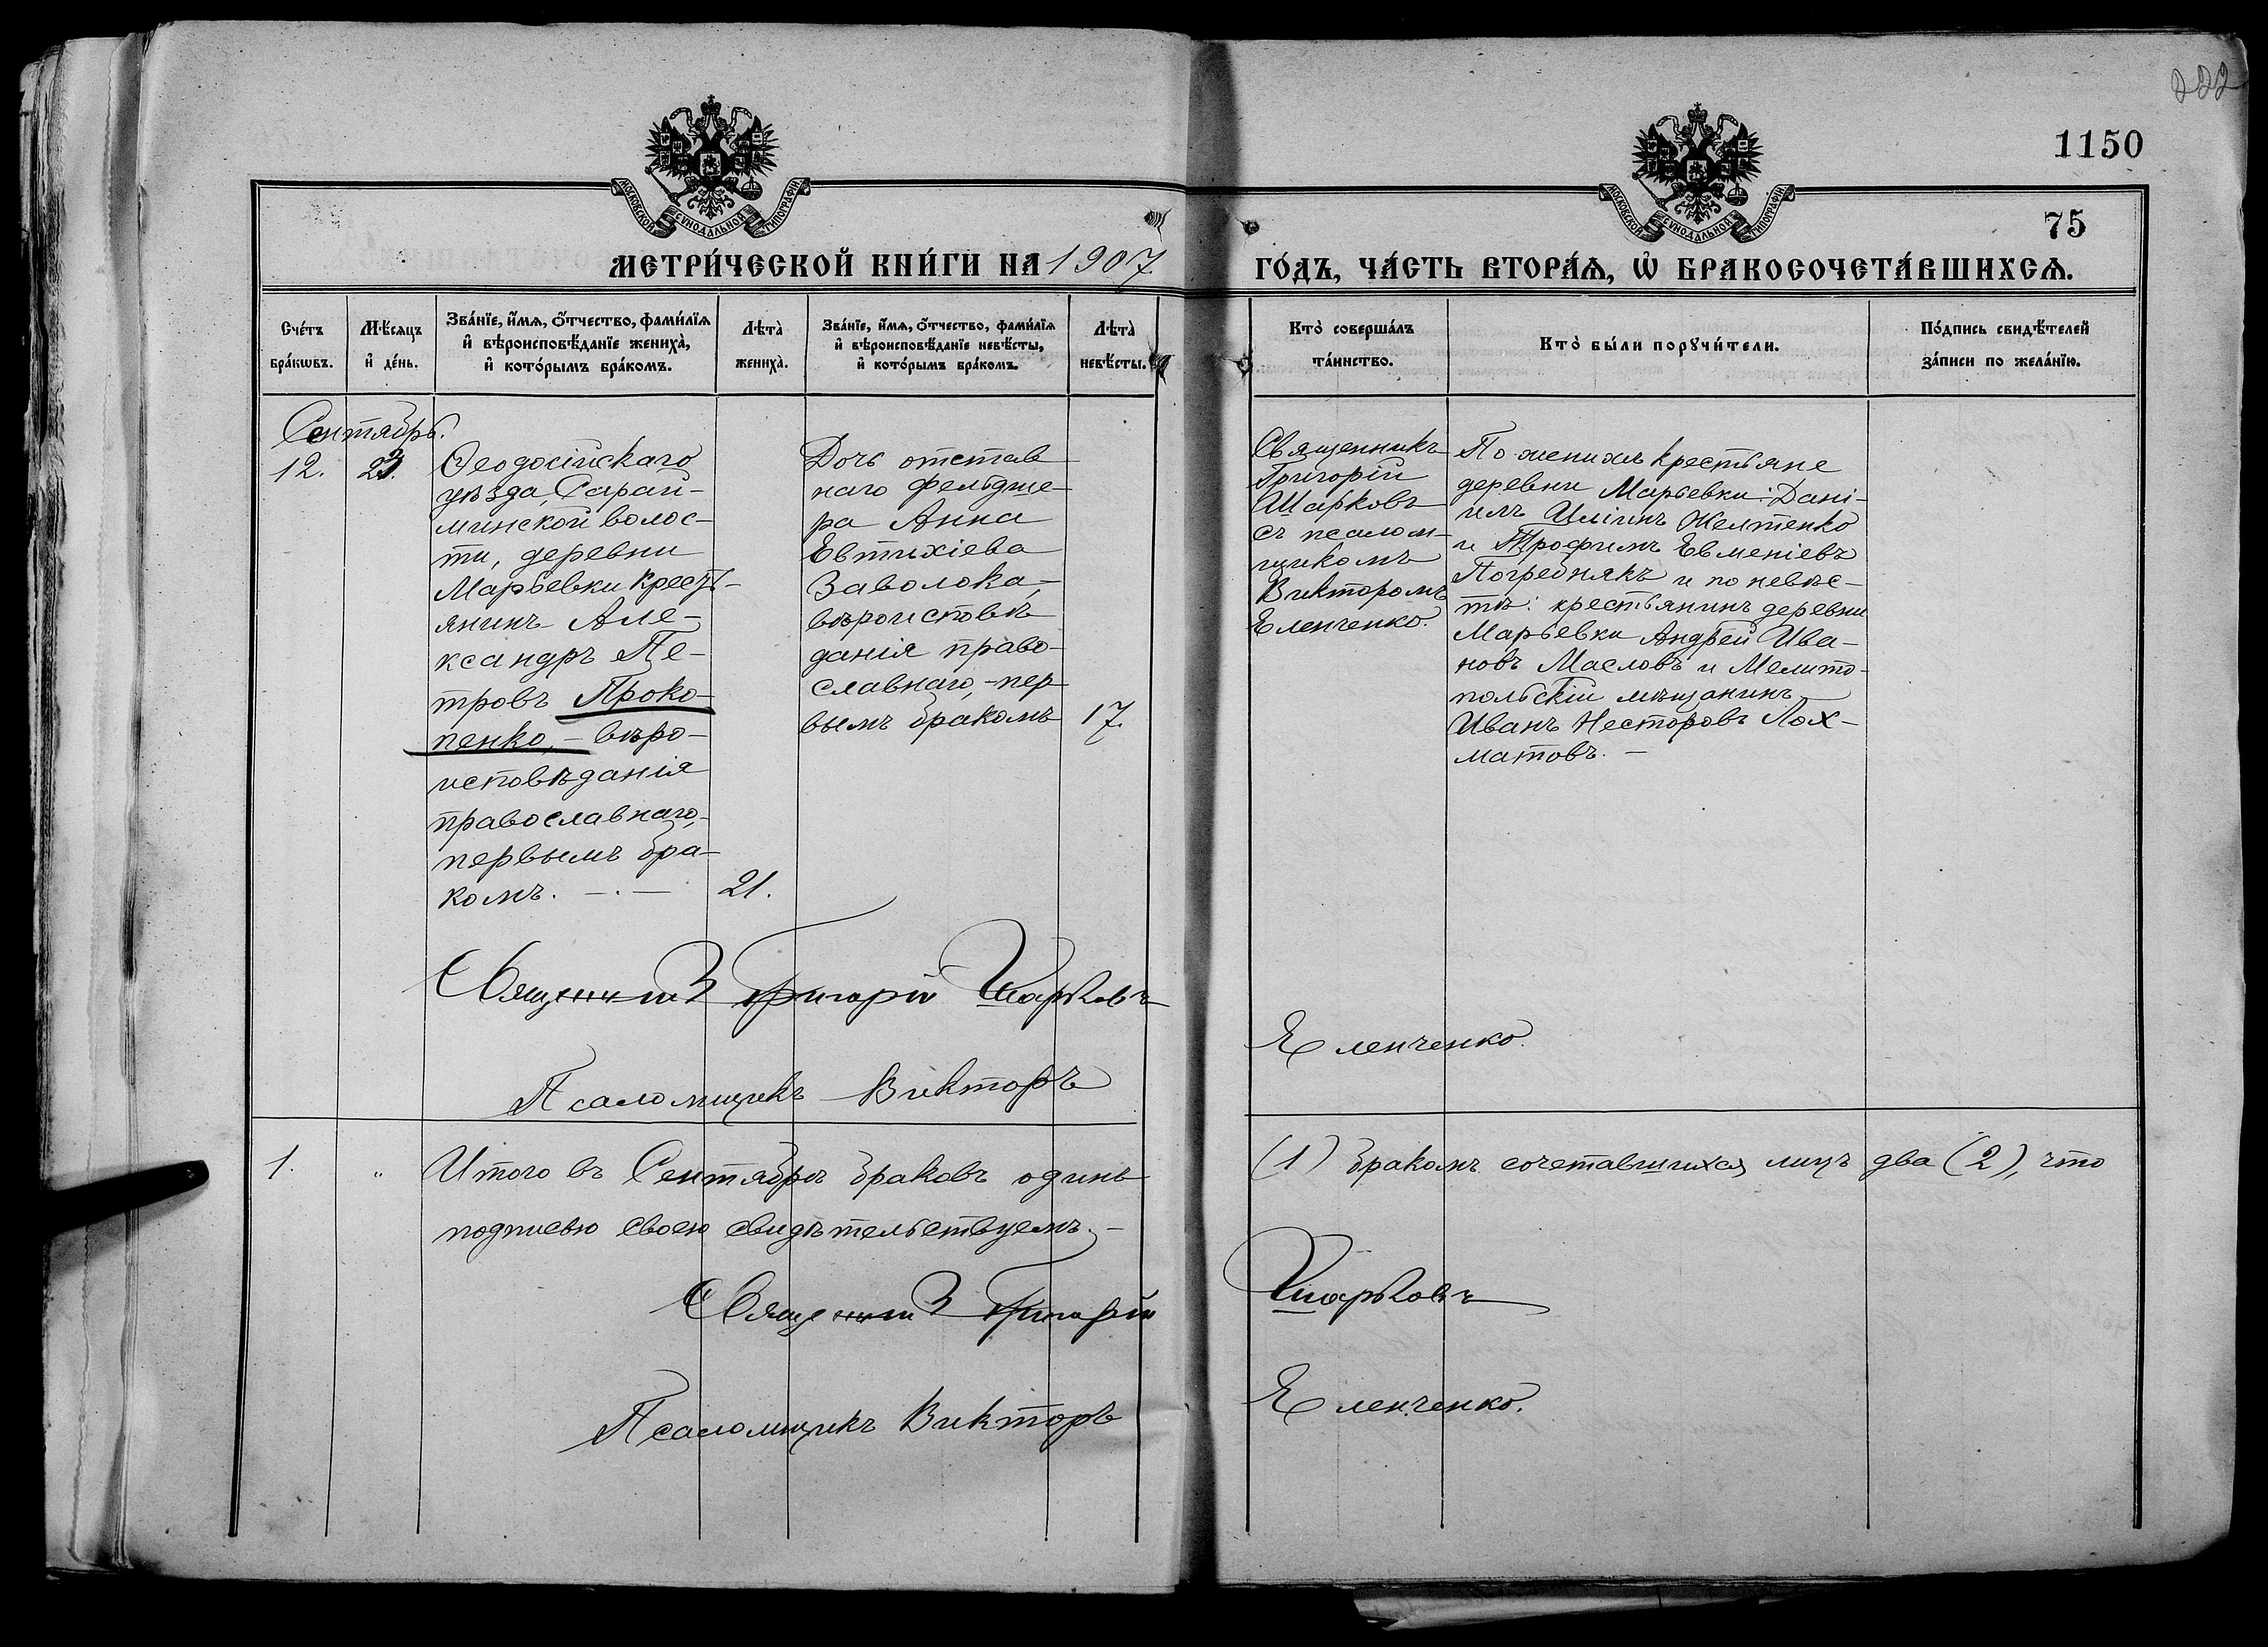 222
1150
75
МОСКОВСКОЙ СѴНОДАЛЬНОЙ ТИПОГРАФІИ
МОСКОВСКОЙ СѴНОДАЛЬНОЙ ТИПОГРАФІИ
МЕТРИ́ЧЕСКОЙ КНИ́ГИ НА 1907
ГО́ДЪ, ЧА́СТЬ ВТОРА́Ѧ, Ѡ҆ БРАКОСОЧЕТА́ВШИХСѦ.
Сче́тъ
бра́кѡвъ.
Мѣ́сѧцъ
и҆ де́нь.
Зва́нїе, и҆́мѧ, ѻ҆́тчество, фами́лїѧ
и҆ вѣроисповѣ́данїе жениха̀,
и҆ кото́рымъ бра́комъ.
Лѣта̀
жениха̀.
Зва́нїе, и҆́мѧ, ѻ҆́тчество, фами́лїѧ
и҆ вѣроисповѣ́данїе невѣ́сты,
и҆ кото́рымъ бра́комъ.
Лѣта̀
невѣ́сты.
Кто̀ соверша́лъ
та́инство.
Кто̀ бы́ли порꙋчи́тели.
По́дпись свидѣ́телей
за́писи по жела́нїю.
Сентябрь.
12.
23.
Ѳеодосійскаго
уѣзда, Сарай-
минской волос-
ти, деревни
Марьевки крест-
янинъ Але-
ксандръ Пе-
тровъ Проко-
пенко, - вѣро-
исповѣданія
православнаго,
первымъ бра-
комъ. -.-
21.
Дочь отстав
наго фельдше-
ра Анна
Евтихіева
Заволока,
вѣроисповѣ
данія право-
славнаго, - пер
вымъ бракомъ
17.
Священникъ
Григорій
Шарковъ
съ псалом-
щикомъ
Викторомъ
Еленченко.
По женихѣ крестьяне
деревни Марьевки: Дані-
илъ Желтенко
и Трофимъ Евменіевъ
Погребнякъ и по невѣс-
тѣ: крестьянинъ деревни
Марьевки Андрей Ива-
новъ Масловъ и Мелито-
польскій мѣщанинъ
Иванъ Несторовъ Лох-
матовъ. -
Священникъ Григорій Шарковъ
Псаломщикъ Викторъ
Еленченко.
1.
"
Итого въ Сентябрѣ браковъ одинъ
(1) бракомъ сочетавшихся лицъ два (2), что
подписью своею свидѣтельствуемъ. -
Священникъ Григорій
Шарковъ
Псаломщикъ Викторъ
Еленченко.